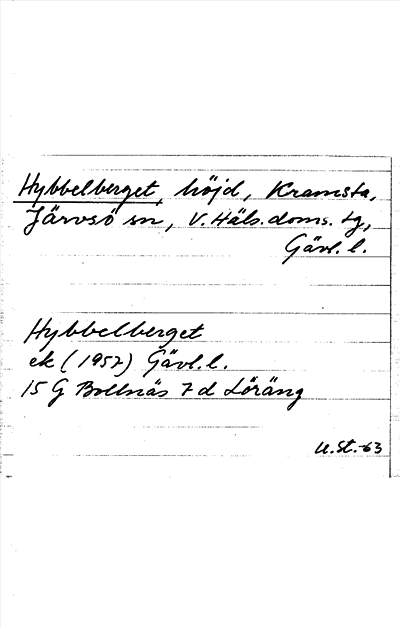 Hybbelberget, höjd, Kramsta,
Järvsö sn, V. Häls. doms. tg,
Gävl. l.
Hybbelberget
ek (1957) Gävl. l.
15 G Bollnäs 7 d Löräng
U.St.-63